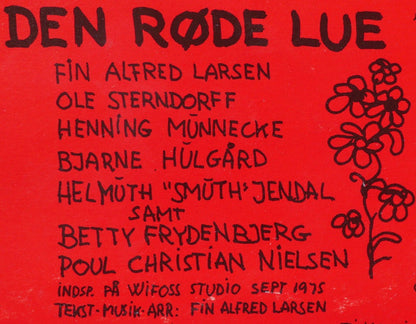 DEN RØDE LUE
FIN ALFRED LARSEN
OLE STERNDORFF
HENNING MŪNNECKE
BJARNE HŪLGÅRD
HELMŪTH "SMŪTH" JENDAL
SAMT
BETTY FRYDENBJERG
POUL CHRISTIAN NIELSEN
INDSP. PÅ WIFOSS STUDIO SEPT 1975
TEKST-MUSIK-ARR: FIN ALFRED LARSEN